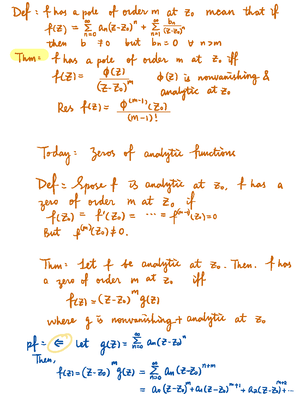 Def: f has a pole of order m at z₀ mean that if
f(z) = ∑_{n=0}^{∞} aₙ(z-z₀)ⁿ + ∑_{n=1}^{∞} bₙ/(z-z₀)ⁿ
then b ≠0 but bₙ=0 ∀ n>m
Thm: f has a pole of order m at z₀ iff
f(z)= φ(z)/(z-z₀)ᵐ φ(z) is nonvanishing &
analytic at z₀
Res f(z) = φ^{(m-1)}(z₀)/(m-1)!
Today: Zeros of analytic functions
Def: Spose f is analytic at z₀, f has a
zero of order m at z₀ if
f(z₀) = f'(z₀) = ⋯ = f^{(m-1)}(z₀)=0
But f^{(m)}(z₀)≠0.
Thm: Let f be analytic at z₀. Then, f has
a zero of order m at z₀ iff
f(z)=(z-z₀)ᵐ g(z)
where g is nonvanishing + analytic at z₀
pf: ⇐ Let g(z)= ∑_{n=0}^{∞} aₙ(z-z₀)ⁿ
Then,
f(z)=(z-z₀)ᵐ g(z) = ∑_{n=0}^{∞} aₙ(z-z₀)ⁿ⁺ᵐ
= a₀(z-z₀)ᵐ+a₁(z-z₀)ᵐ⁺¹+a₂(z-z₀)ᵐ⁺²+⋯